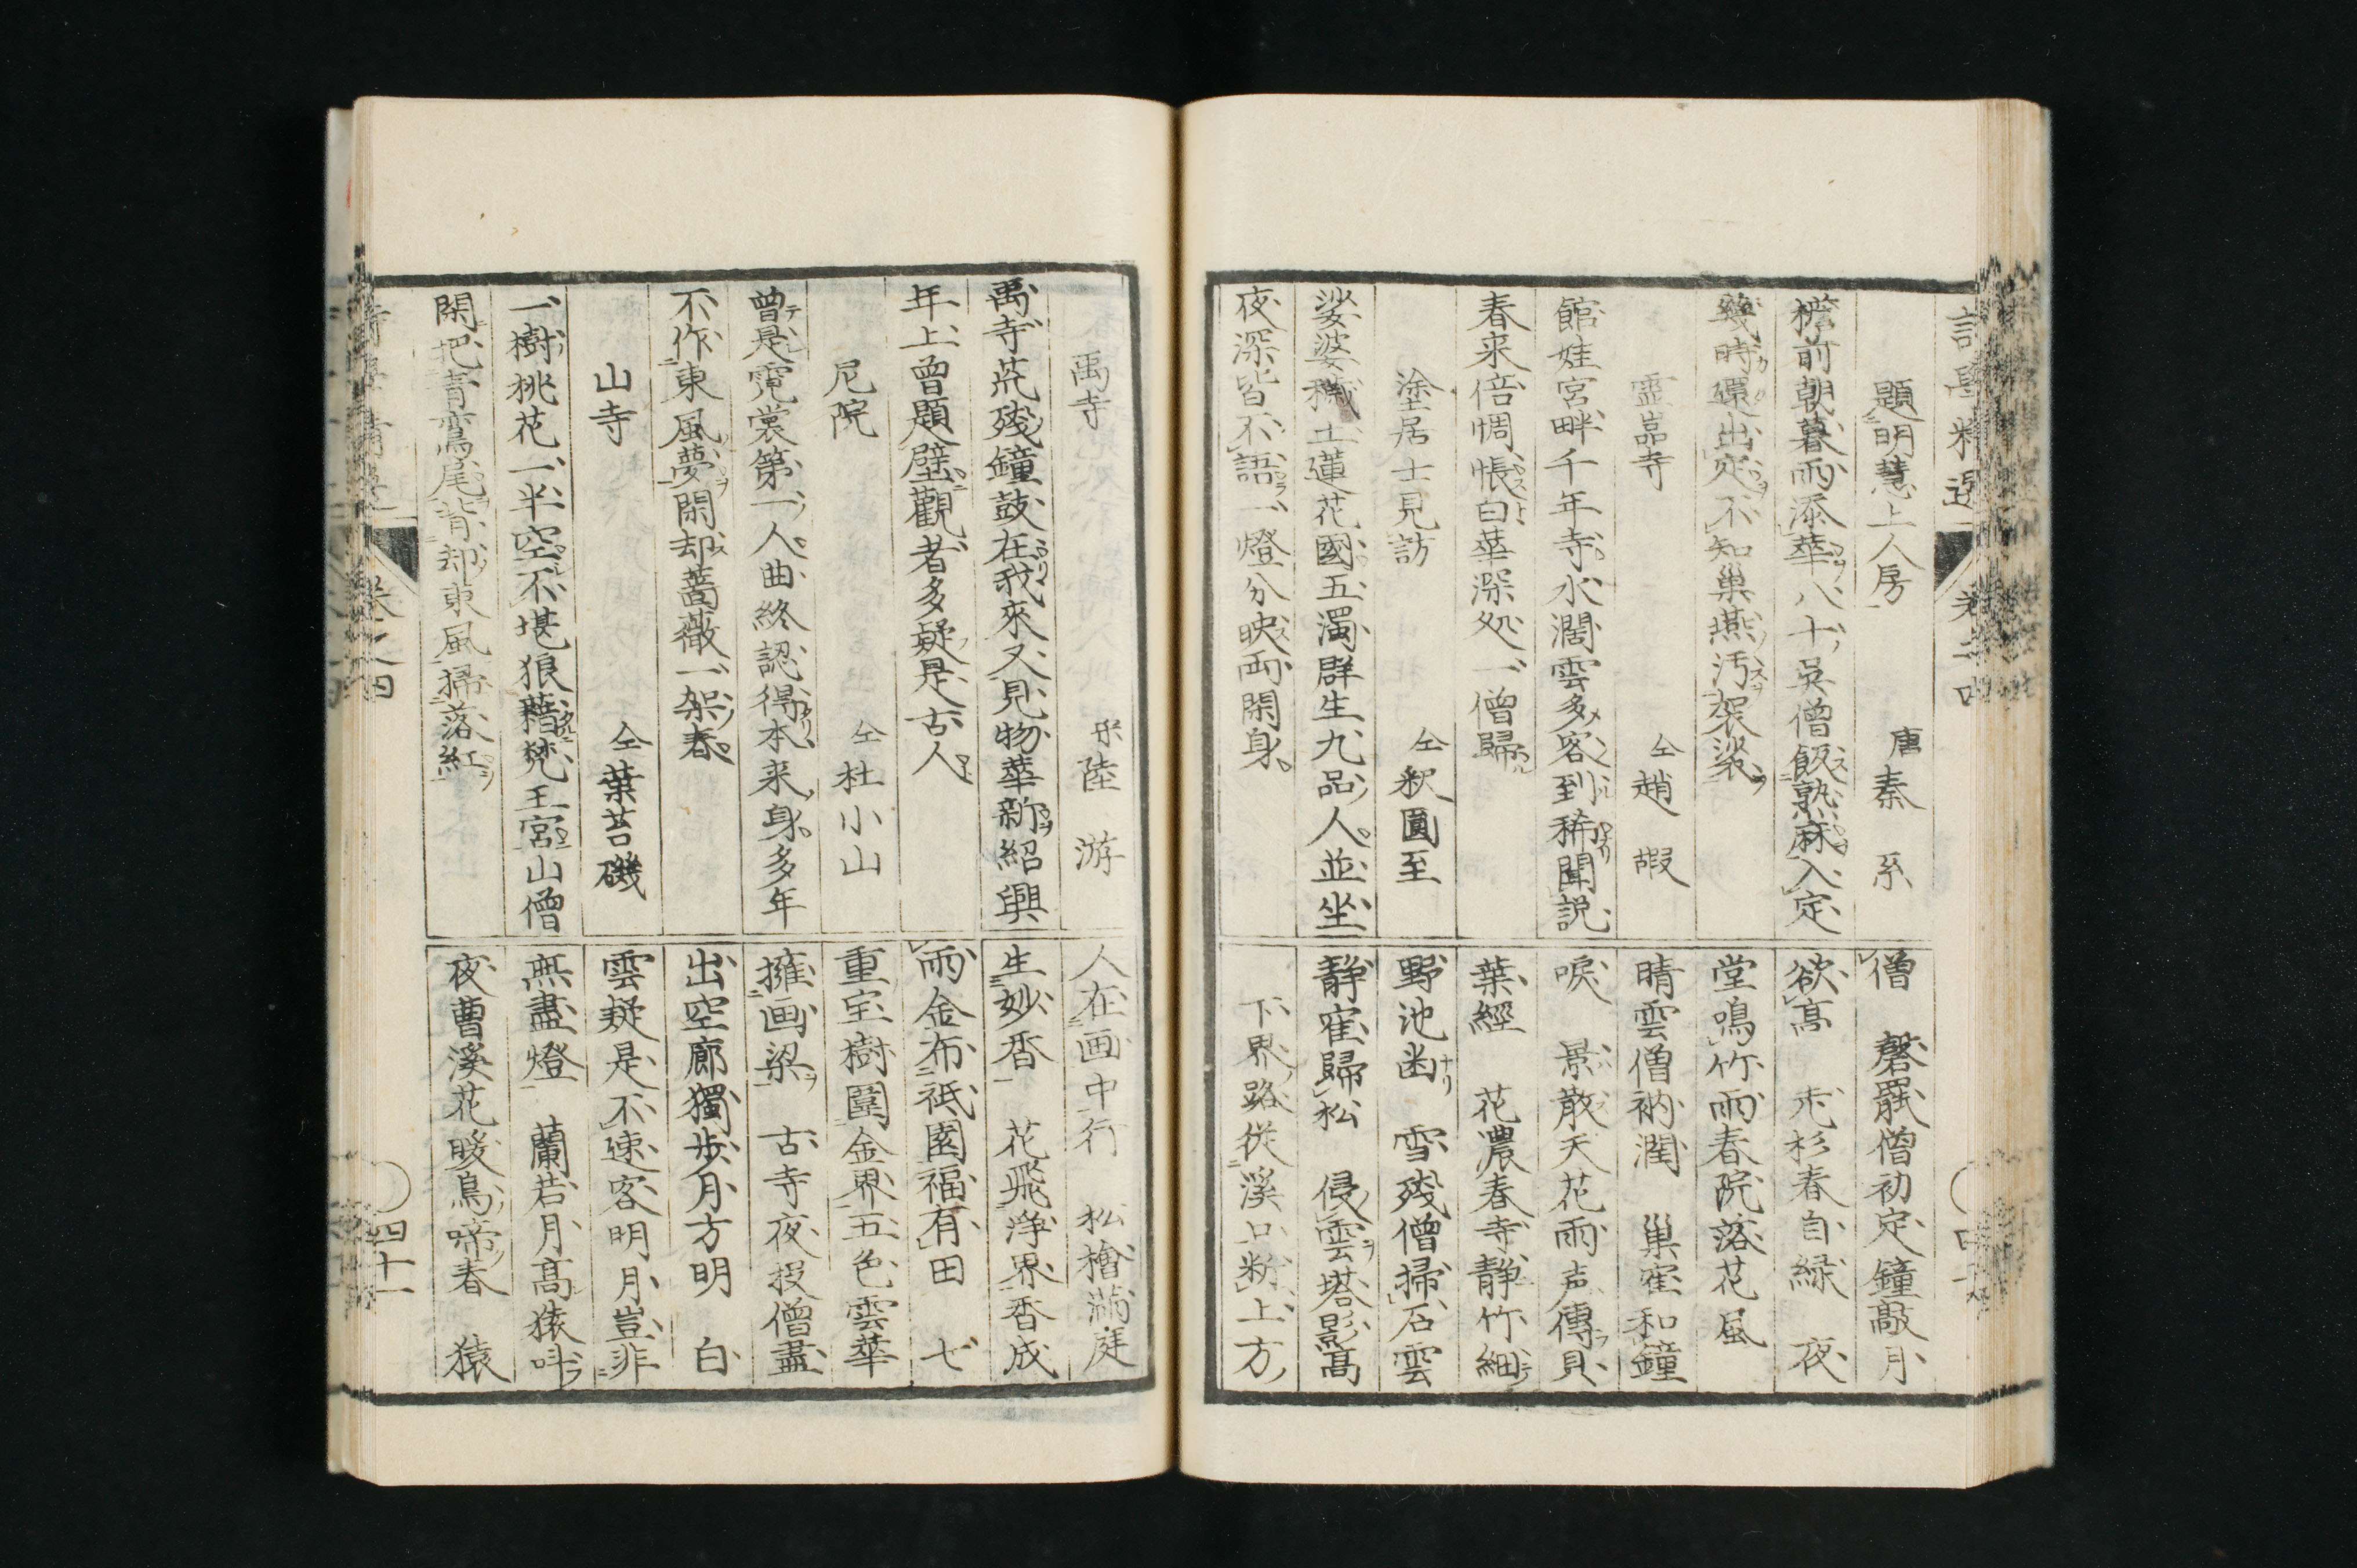 題明慧上人房　唐秦系
檐前朝暮雨添華八十吳僧飯熟麻入定
幾時還出定不知巢燕汚袈裟
靈嵓寺　仝趙嘏
館娃宮畔千年寺水濶雲多客到稀聞説
春来倍惆悵白華深処一僧歸
塗居士見訪　仝釈圓至
娑婆穢土蓮花國五濁群生九品人並坐
夜深皆不語一燈分映両閑身
僧　磬罷僧初定鐘敲月
欲高　杉春自緑　夜
堂鳴竹雨春院落花風
晴雲僧衲潤　巢寉和鐘
唳　景散天花雨声傳貝
葉經　花濃春寺静竹細
野池幽　雪残僧掃石雲
静寉歸松　侵雲塔影高
下界路從溪口粉上方
禹寺　宋陸游
禹寺荒残鐘鼓在我來又見物華新紹興
年上曾題壁觀者多疑是古人
尼院　仝杜小山
曾是霓裳第一人曲終認得本来身多年
不作東風夢閑却薔薇一架春
山寺　仝葉苔磯
一樹桃花一半空不堪狼藉梵王宮山僧
閑把青鸞尾背却東風掃落紅
人在画中行　松檜満庭
生妙香　花飛淨界香成
雨金布祇園福有田　七
重宝樹圍金界五色雲華
擁画梁　古寺夜投僧盡
出空廊獨歩月方明　白
雲疑是不速客明月豈非
無盡燈　蘭若月高猿叫
夜曹溪花暖鳥啼春　猿
卷之四
四十一